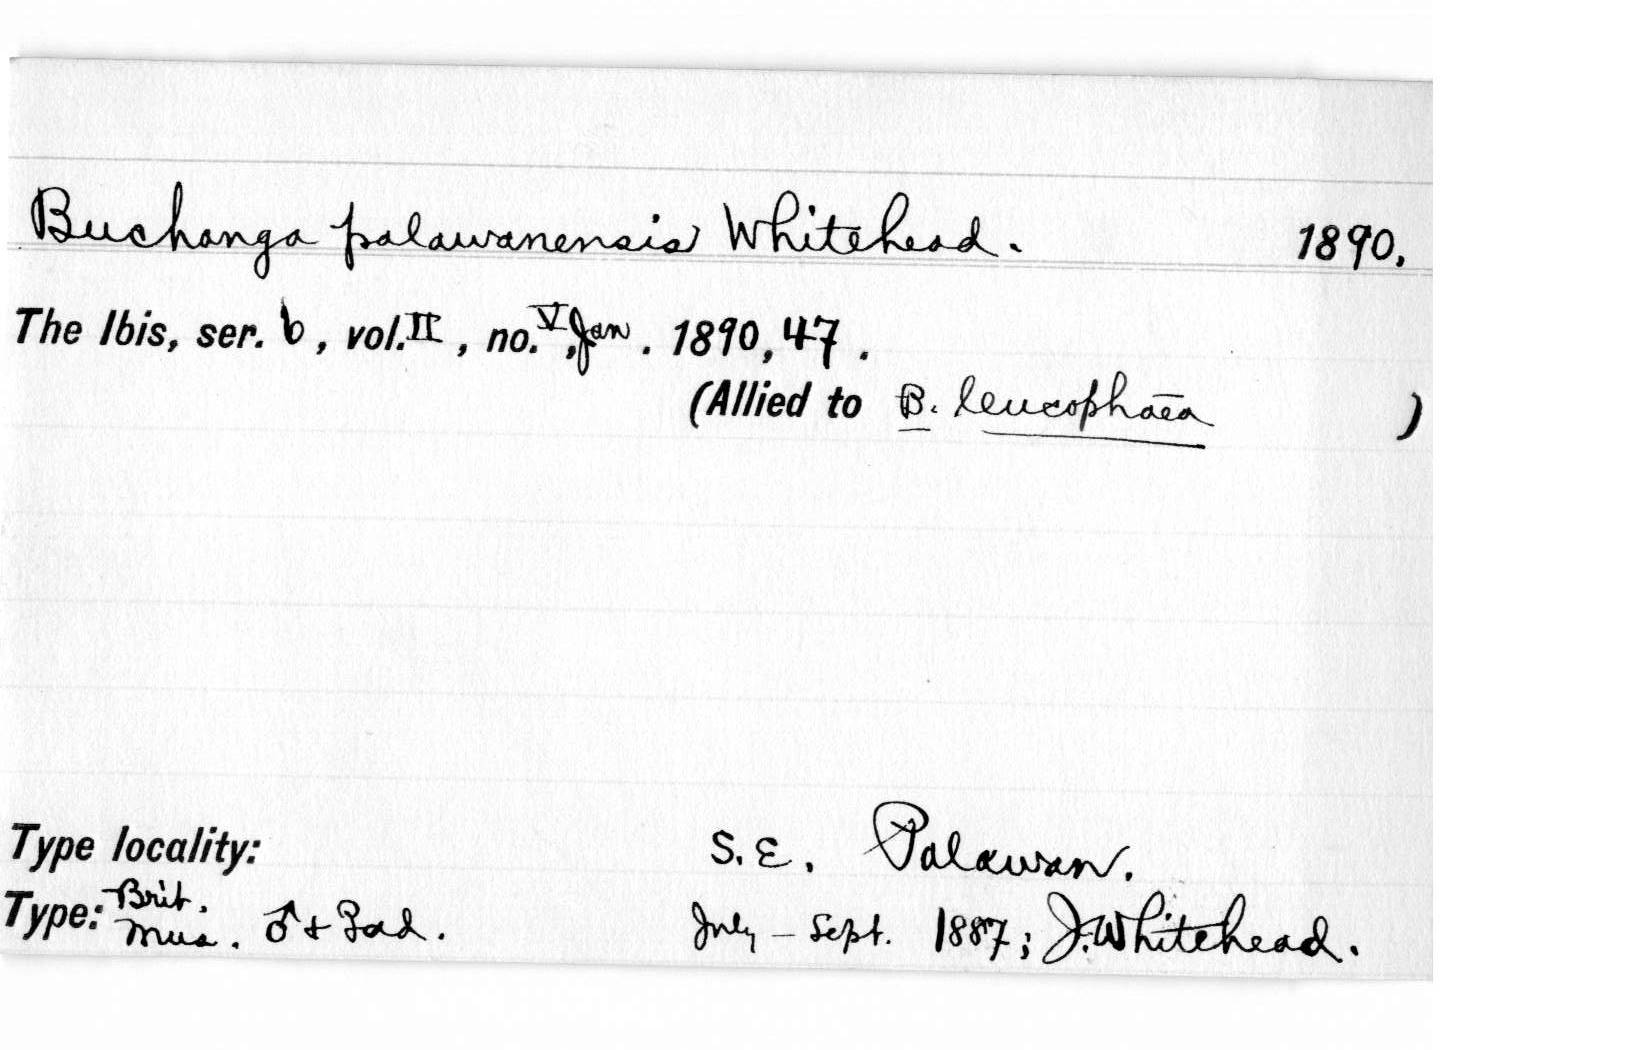 Buchanga palawanensis Whitehead. 1890.
The Ibis, ser. 6, vol. II, no. V, Jan. 1890, 47.
(Allied to B. leucophaea)
Type locality: S.E. Palawan.
Type: Brit. Mus. ♂ + ♀ ad. July – Sept. 1887; J. Whitehead.